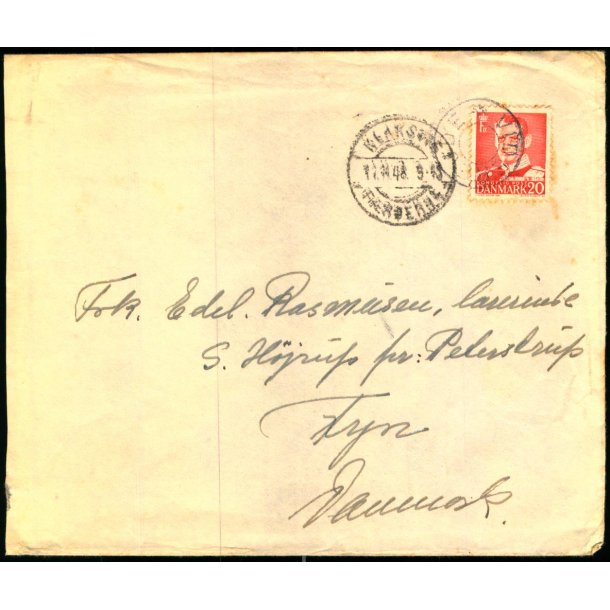 KLAKSVIG
17.11.48. 9-
FÆRØERNE
DANMARK 20
Frk. Edel. Rasmussen, lærerinde
S. Højrup pr: Peterstrup
Fyn
Danmark.